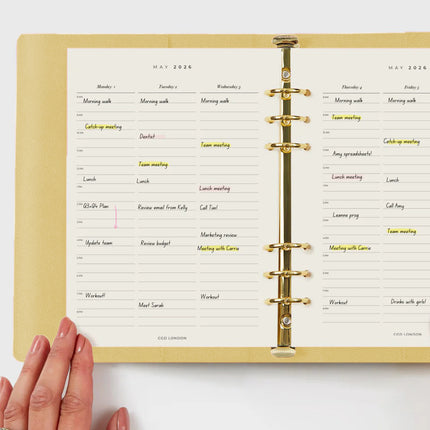 MAY 2026
Monday 1
Morning walk
Catch-up meeting
Lunch
Q3+Q4 Plan
Update team
Workout!
Tuesday 2
Morning walk
Dentist
Team meeting
Lunch
Review email from Kelly
Review budget
Meet Sarah
Wednesday 3
Morning walk
Team meeting
Lunch meeting
Call Toni!
Marketing review
Meeting with Carrie
Workout
CGD LONDON
MAY 2026
Thursday 4
Morning walk
Team meeting
Amy spreadsheets!
Lunch meeting
Leanne prog
Meeting with Carrie
Workout!
Friday
Morning walk
Catch-up meeting
Lunch
Call Amy
Team meeting
Drinks with girls!
CGD LONDON